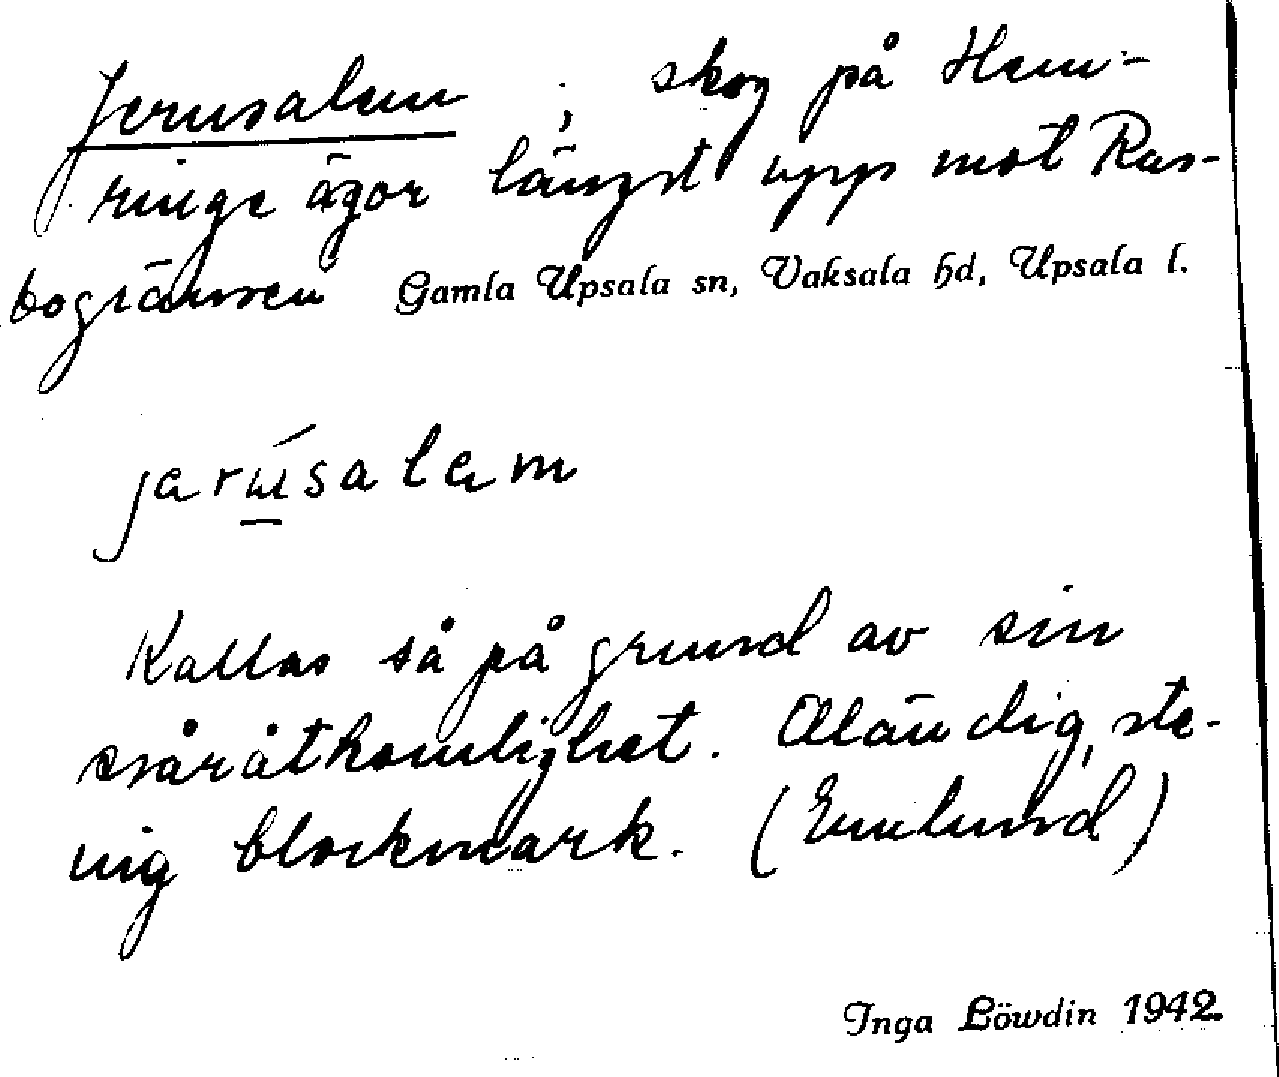 Jerusalem ; skog på Hem-
ringe ägor längst upp mot Ras-
bogränsen Gamla Upsala sn, Vaksala hd, Upsala l.
jarúsalam
Kallas så på grund av sin
svåråtkomlighet. Oländig, ste-
nig blockmark. (Emlund)
Inga Löwdin 1942